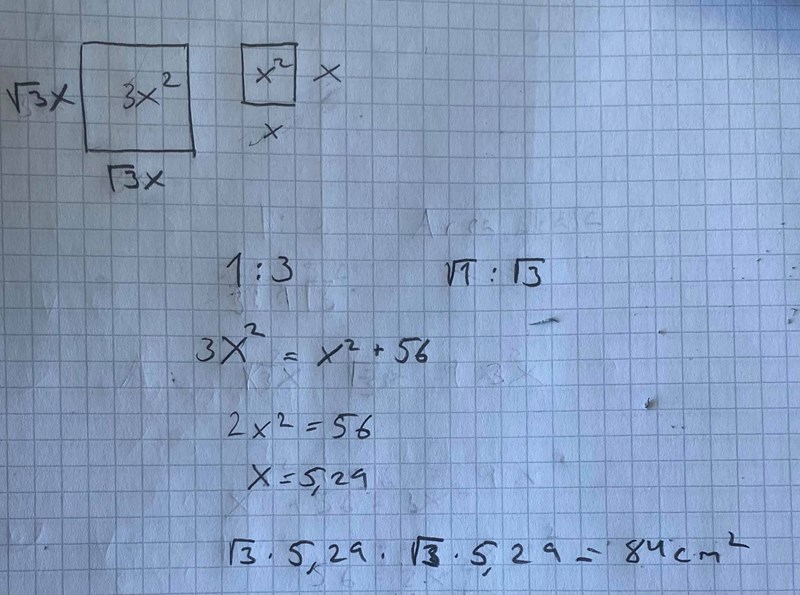 √3x 3x² x² x
√3x x
1:3 √1 : √3
3x² = x² + 56
2x² = 56
x = 5,29
√3 · 5,29 · √3 · 5,29 = 84 cm²